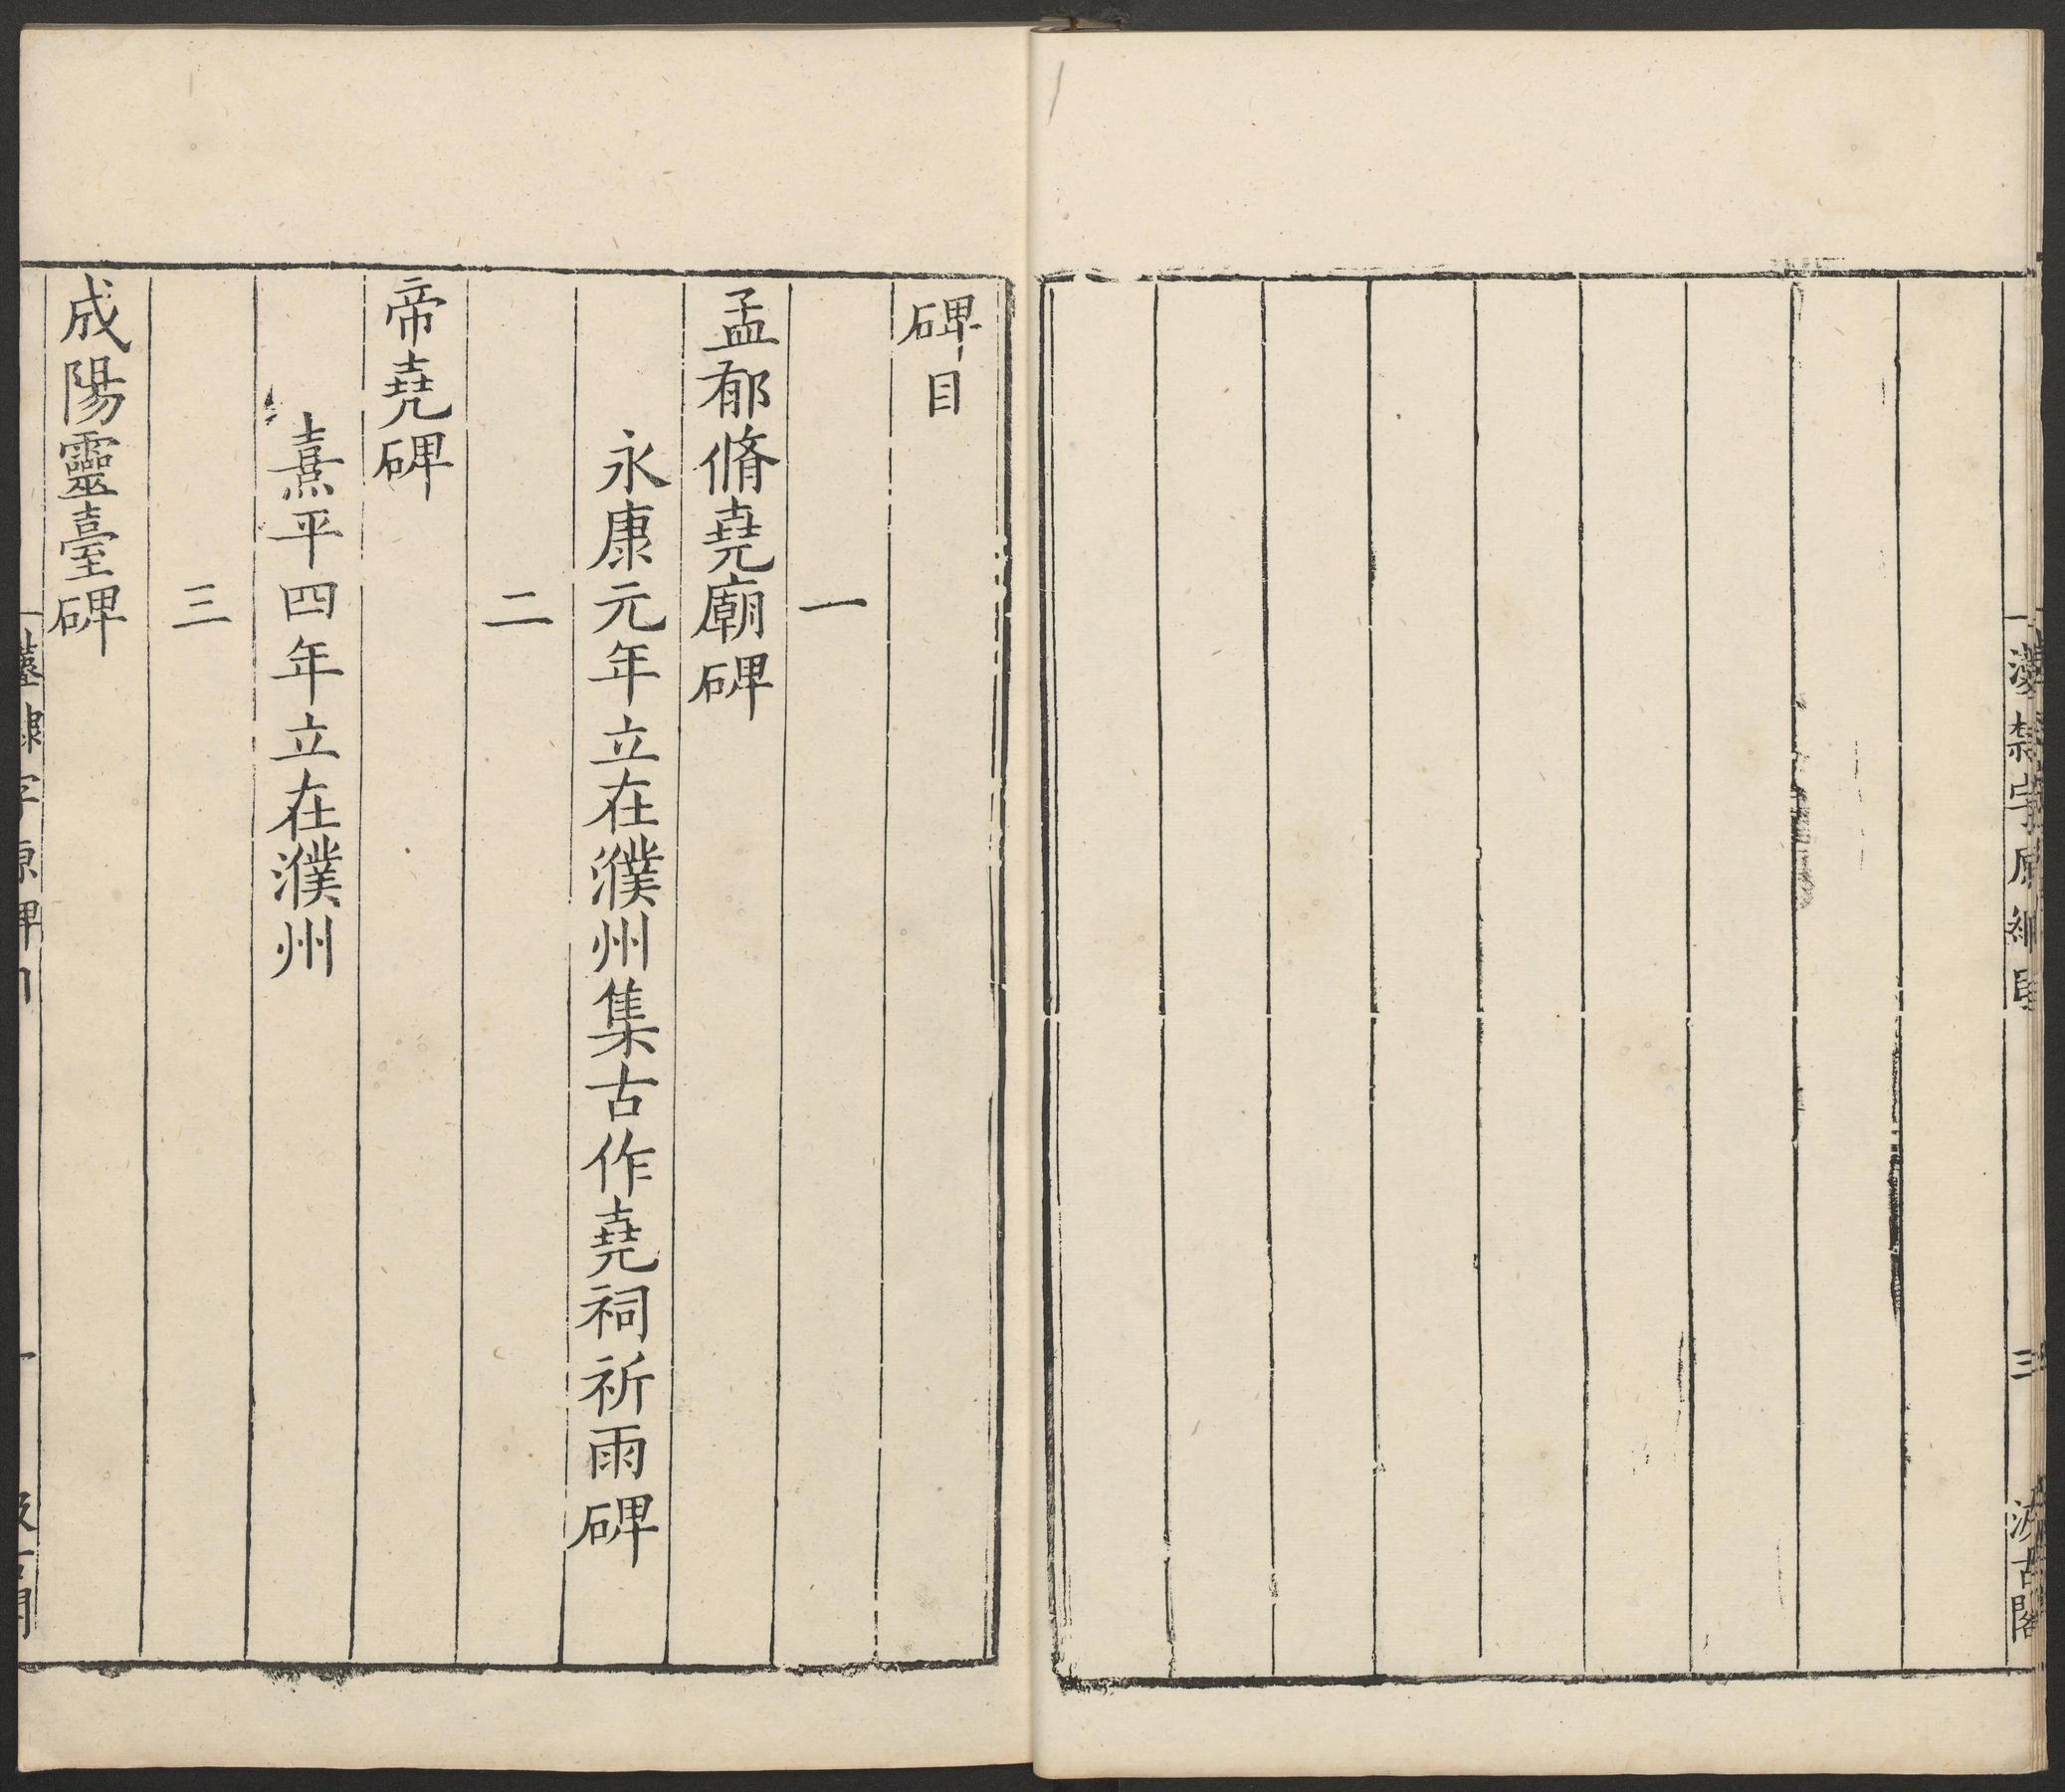 漢隸字原綱目 三 汲古閣
碑目
一
孟郁脩堯廟碑
永康元年立在濮州集古作堯祠祈雨碑
二
帝堯碑
熹平四年立在濮州
三
成陽靈臺碑